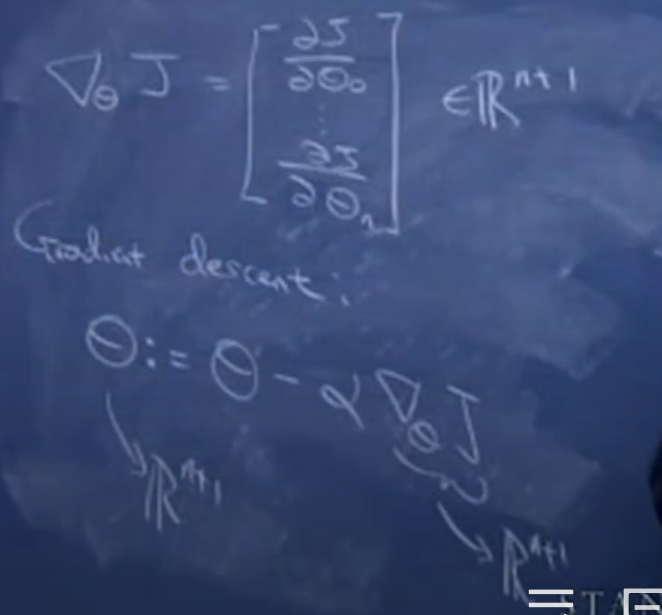 ∇_θ J = [ ∂J/∂θ₀ ⋮ ∂J/∂θₙ ] ∈ ℝⁿ⁺¹
Gradient descent:
θ := θ - α ∇_θ J
ℝⁿ⁺¹
ℝⁿ⁺¹
STAN